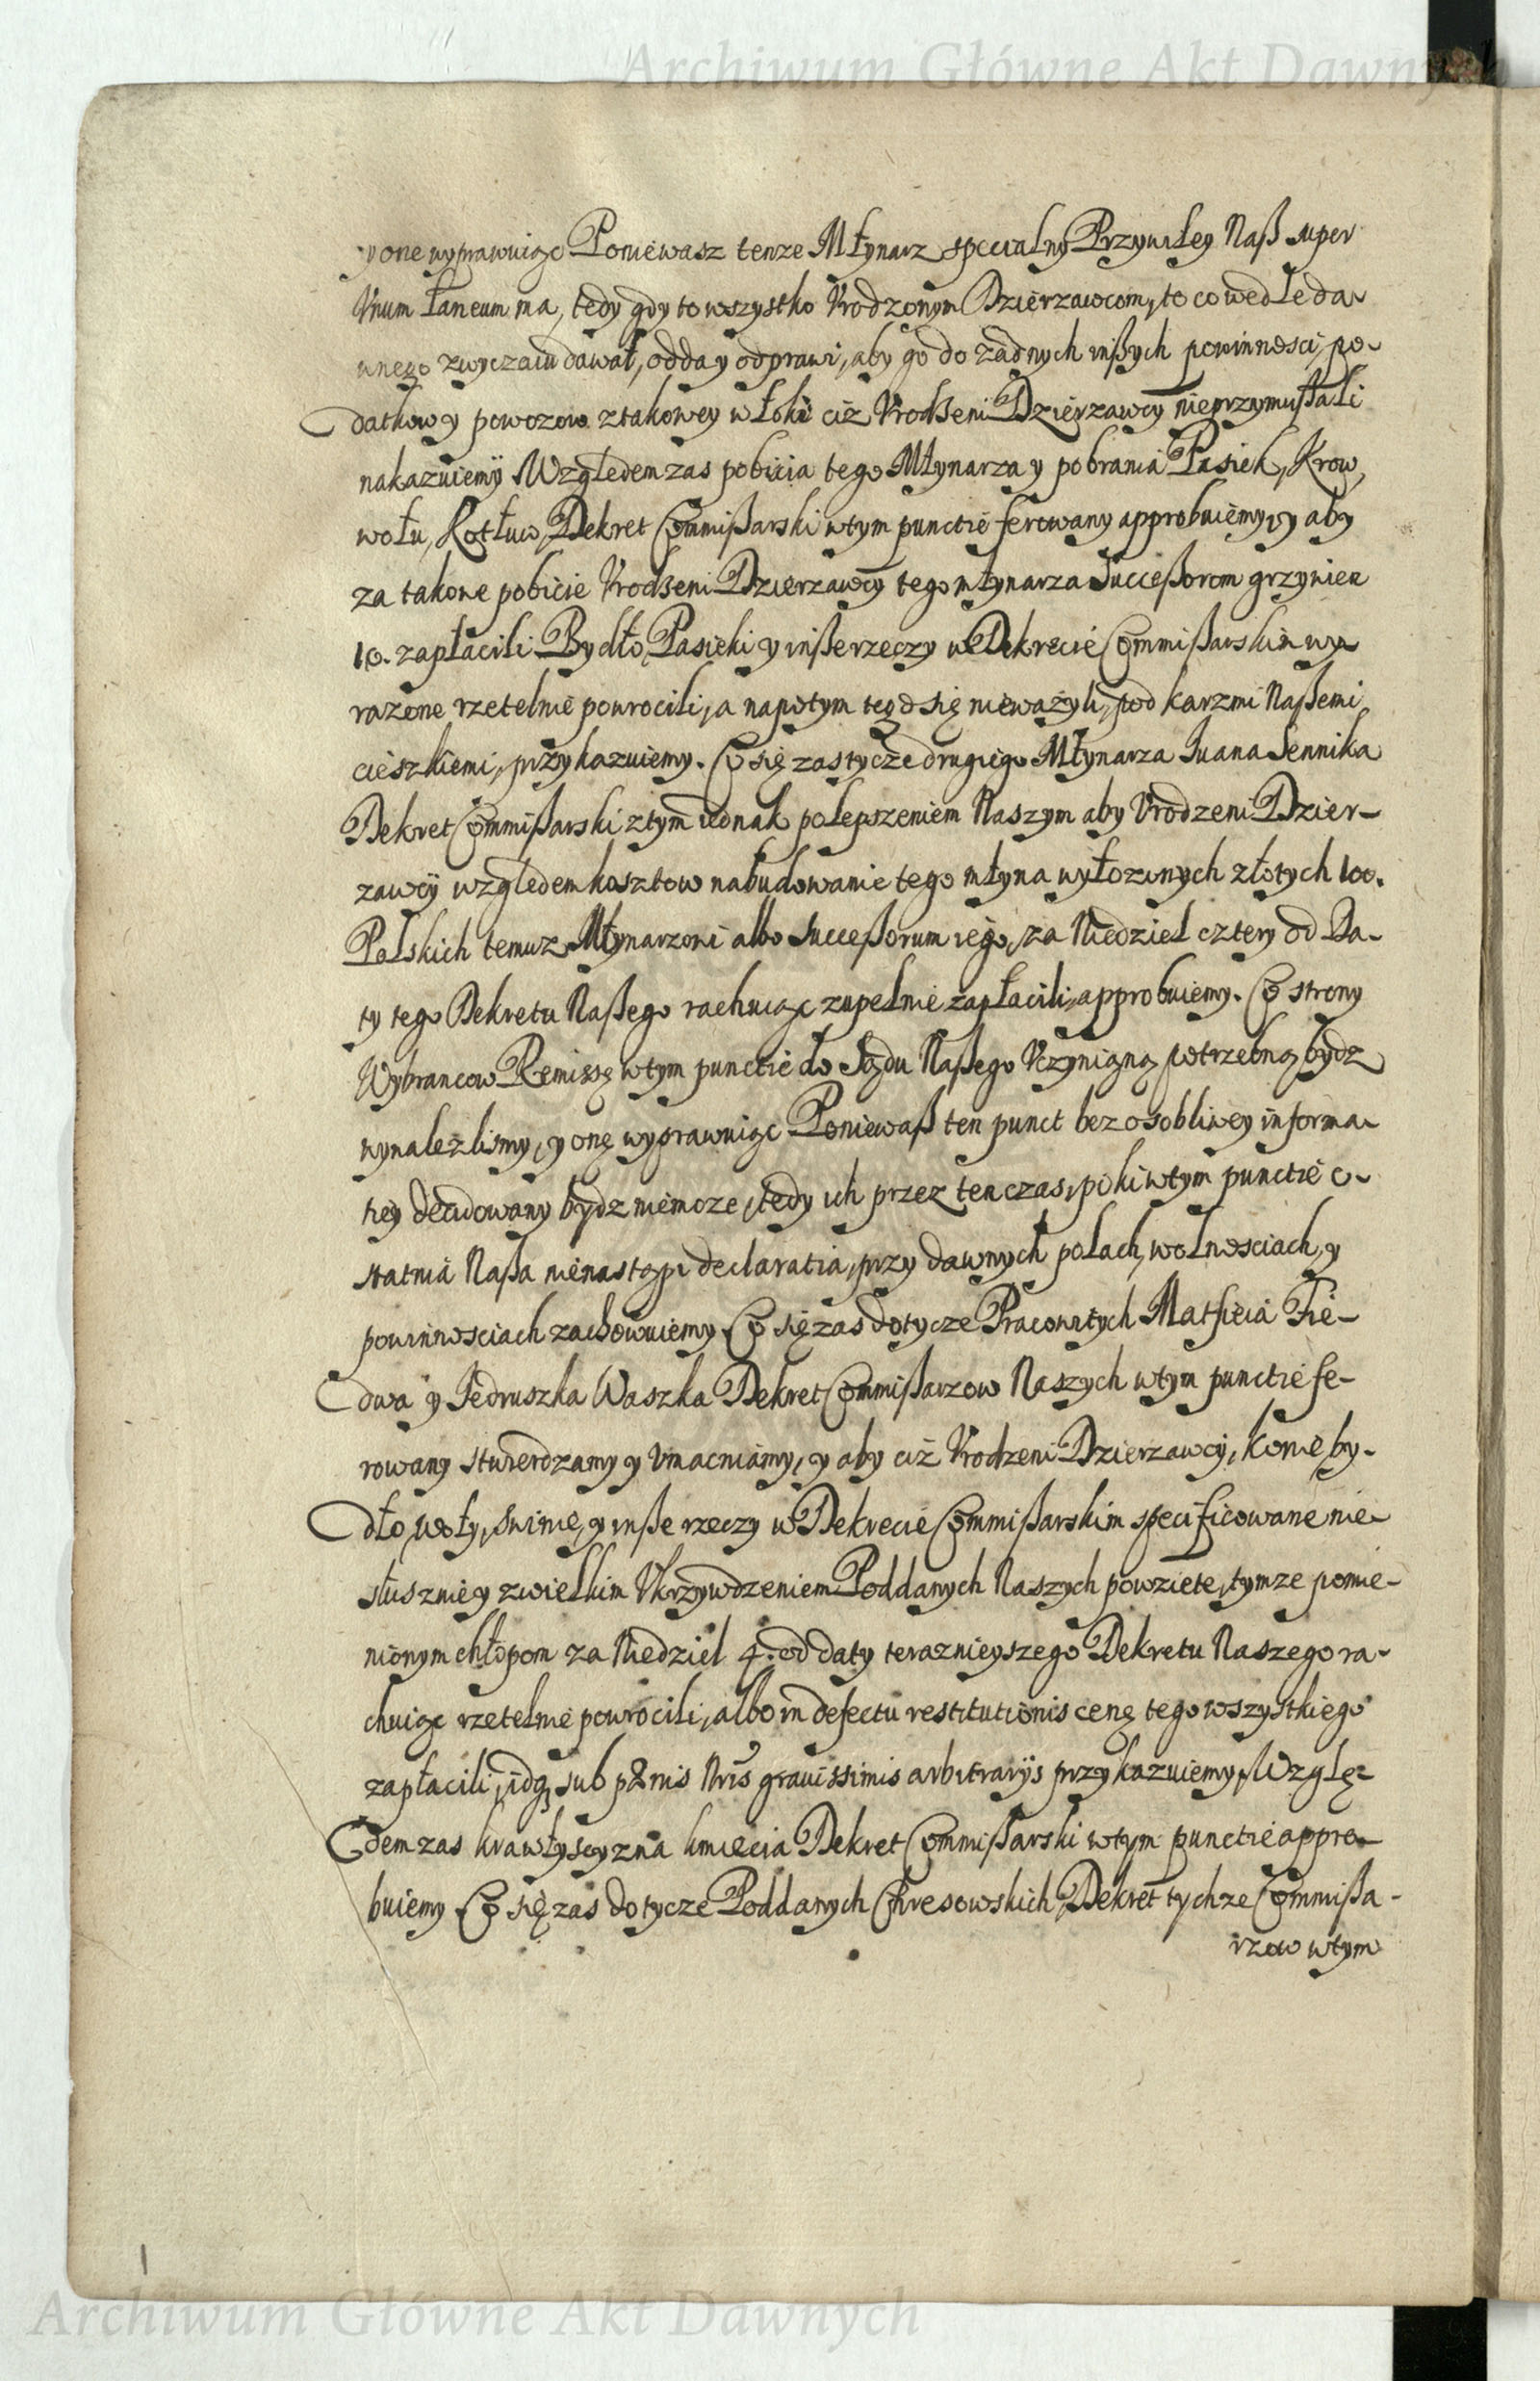 Archiwum Główne Akt Dawnych
y one wyprawuiąc Poniewasz tenze Młynarz specialny Przywiley Naß super
Vnum Łaneum ma, tedy gdy to wszystko Vrodzonym Dzierzawcom, to co wedle da-
wnego zwyczaiu dawał, odda y odprawi, aby go do żadnych inßych powinnosci, po-
datkow y powozow z takowey włoki ciż Vrodzeni Dzierzawcy nieprzymußali
nakazuiemy Względem zas pobicia tego Młynarza y pobrania Pasiek, Krow,
wołu, Kotłuw, Dekret Commißarski w tym punctie ferowany approbuiemy, y aby
za takowe pobicie Vrodzeni Dzierzawcy tego młynarza Succeßorom grzywien
10. zapłacili Bydło, Pasieki y inße rzeczy w Dekrecie Commißarskim wy-
razone rzetelnie powrocili, a napotym tego się nieważyli, pod karzmi Naßemi
cieszkiemi, przykazuiemy. Co się zas tycze drugiego Młynarza Iuana Sennika
Dekret Commißarski z tym iednak polepszeniem Naszym aby Vrodzeni Dzier-
zawcy względem kosztow nabudowanie tego młyna wyłozonych złotych 100.
Polskich temuz Młynarzowi albo Succeßorum iego, za Niedziel cztery od Da-
ty tego Dekretu Naßego rachuiąc zupełnie zapłacili, approbuiemy. Co strony
Wybrancow Remissę w tym punctie do Sądu Naßego Vczynioną potrzebną bydz
wynalezlismy, y onę wyprawuiąc Poniewaß ten punct bez osobliwey informa-
tiey decidowany bydz niemoze, tedy ich przez ten czas, poki w tym punctie o-
statnia Naßa nienastąpi declaratia, przy dawnych polach, wolnosciach, y
powinnosciach zachowuiemy. Co się zas dotycze Pracowitych Matfieia Fie-
dwa y Jedruszka Waszka Dekret Commißarzow Naszych w tym punctie fe-
rowany stwierdzamy y Vmacniamy, y aby ciż Vrodzeni Dzierzawcy, konie, by-
dło, woły, swinie, y inße rzeczy w Dekrecie Commißarskim specificowane nie-
słusznie y z wielkim Vkrzywdzeniem Poddanych Naszych powzięte, tymze pomie-
nionym chłopom za Niedziel 4. od daty teraznieyszego Dekretu Naszego ra-
chuiąc rzetelnie powrocili, albo in defectu restitutionis cenę tego wszystkiego
zapłacili, idq sub pænis Nris grauissimis arbitrarijs przykazuiemy, Wzglę-
dem zas kmiecia Dekret Commißarski w tym punctie appro-
buiemy Co się zas dotycze Poddanych Chresowskich, Dekret tychze Commißa-
rzow w tym
1
Archiwum Główne Akt Dawnych